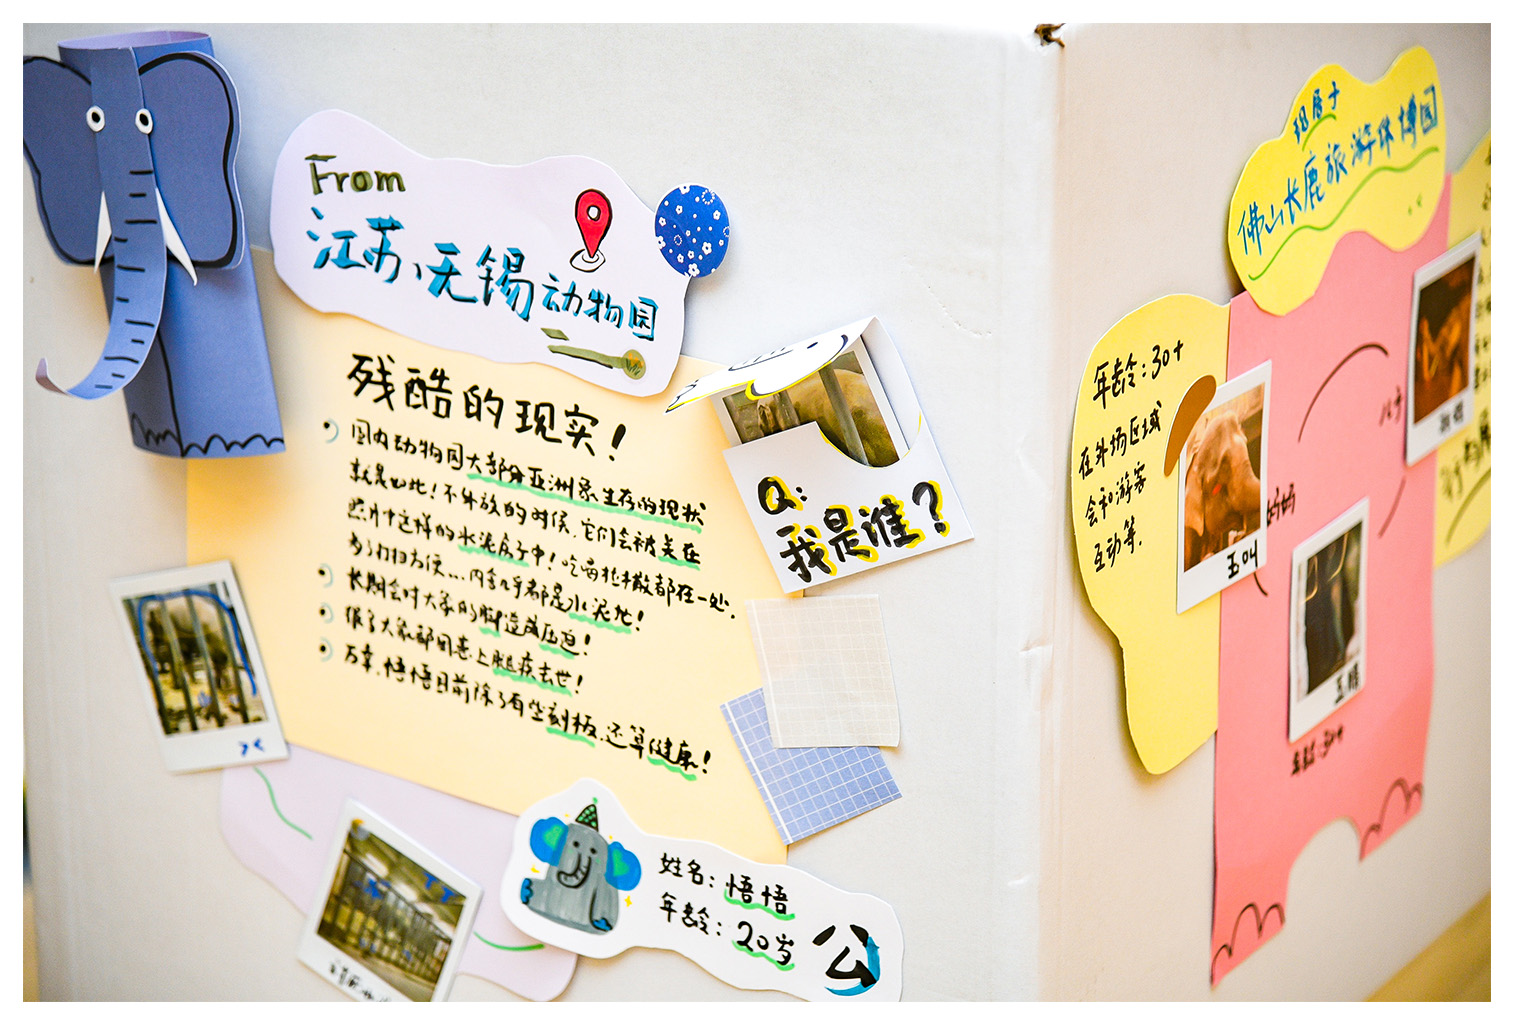 From
江苏、无锡动物园
残酷的现实！
国内动物园大部分亚洲象生存的现状
就是如此！不外放的时候，它们会被关在
照片中这样的水泥盒子中！吃喝拉撒都在一处，
为了打扫方便...内舍几乎都是水泥地！
长期会对大象的脚造成压迫！
很多大象都因患上脚疾去世！
万幸，悟悟目前除了有些刻板，还算健康！
Q：
我是谁？
姓名：悟悟
年龄：20岁
公
现居于
佛山长鹿旅游休博园
年龄：30+
在外场区域
会和游客
互动等.
妈妈
儿子
年龄：30+